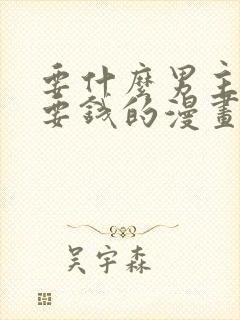 要什麼男主
要錢的漫畫
吳宇森